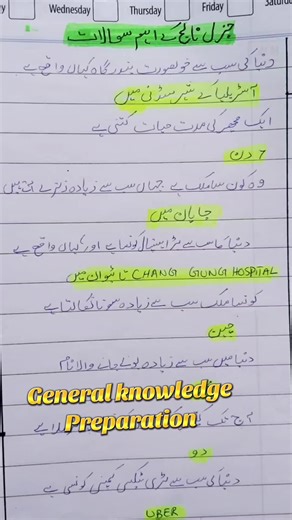 Wednesday Thursday Friday Saturd
جنرل نالج کے اہم سوالات
دنیا کی سب سے خوبصورت بندرگاہ کہاں واقع ہے
آسٹریلیا کے شہر سڈنی میں
ایک مچھر کی مدت حیات کتنی ہے
7 دن
وہ کون سا ملک ہے جہاں سب سے زیادہ زلزلے آتے ہیں
جاپان میں
دنیا کا سب سے بڑا ہسپتال کونسا ہے اور کہاں واقع ہے
CHANG GUNG HOSPITAL تائیوان میں
کونسا ملک سب سے زیادہ سونا نکالتا ہے
چین
دنیا میں سب سے زیادہ بولے جانے والا نام
General knowledge
Preparation
آج تک
دو
دنیا کی سب سے بڑی ٹیکسی کمپنی کونسی ہے
UBER